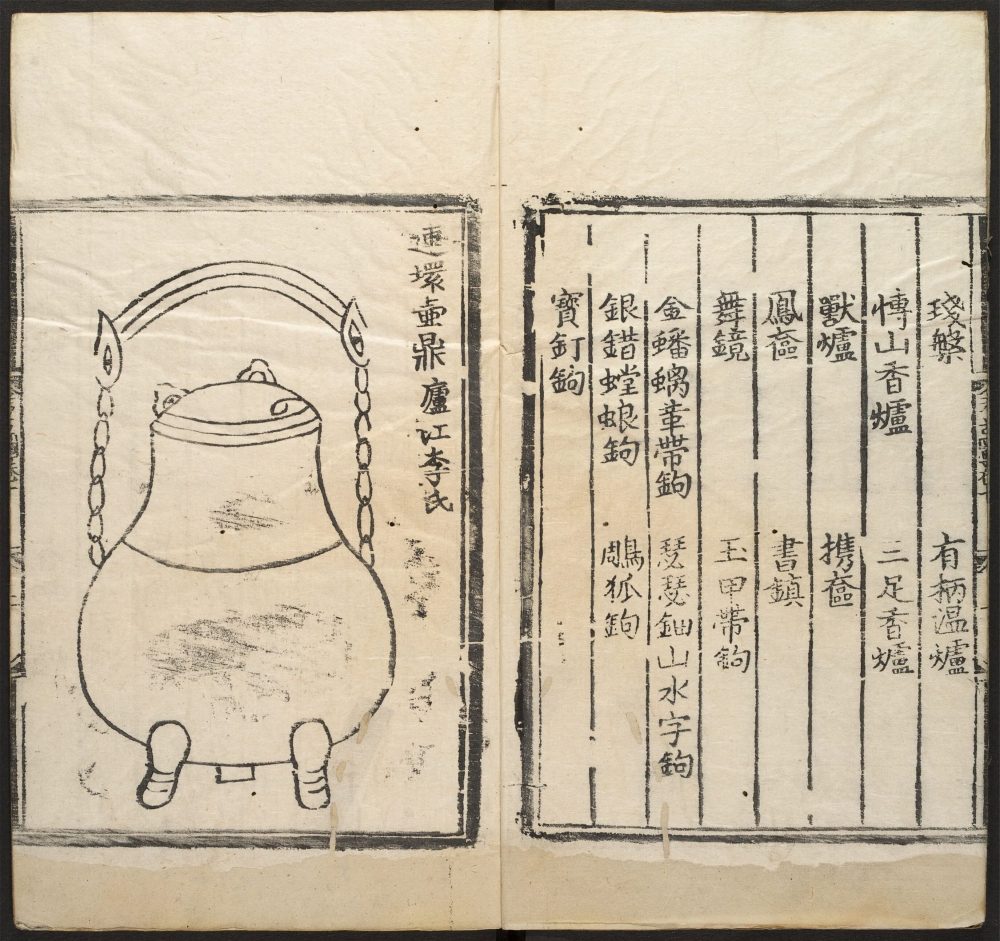 琖槃 有柄温爐
慱山香爐 三足香爐
獸爐 携奩
鳳奩 書鎮
舞鏡 玉甲帶鉤
金蟠螭革帶鉤 瑟瑟鈿山水字鉤
銀錯螳蜋鉤 鵰狐鉤
寶釘鉤
連環壷鼎 廬江李氏